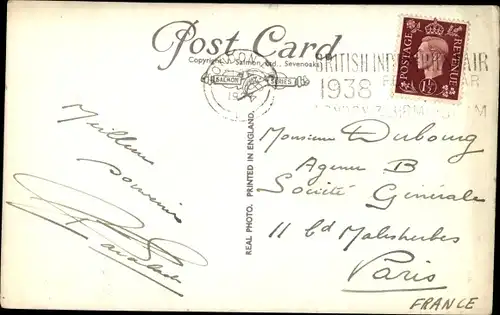 Post Card
Copyright J. Salmon Ltd., Sevenoaks
SALMON SERIES
BRITISH INDUSTRIES FAIR
1938
LONDON BIRMINGHAM
POSTAGE REVENUE
1½
REAL PHOTO. PRINTED IN ENGLAND.
Meilleur
souvenir
Monsieur Dubourg
Agence B
Société Générale
11 bd Malesherbes
Paris
FRANCE